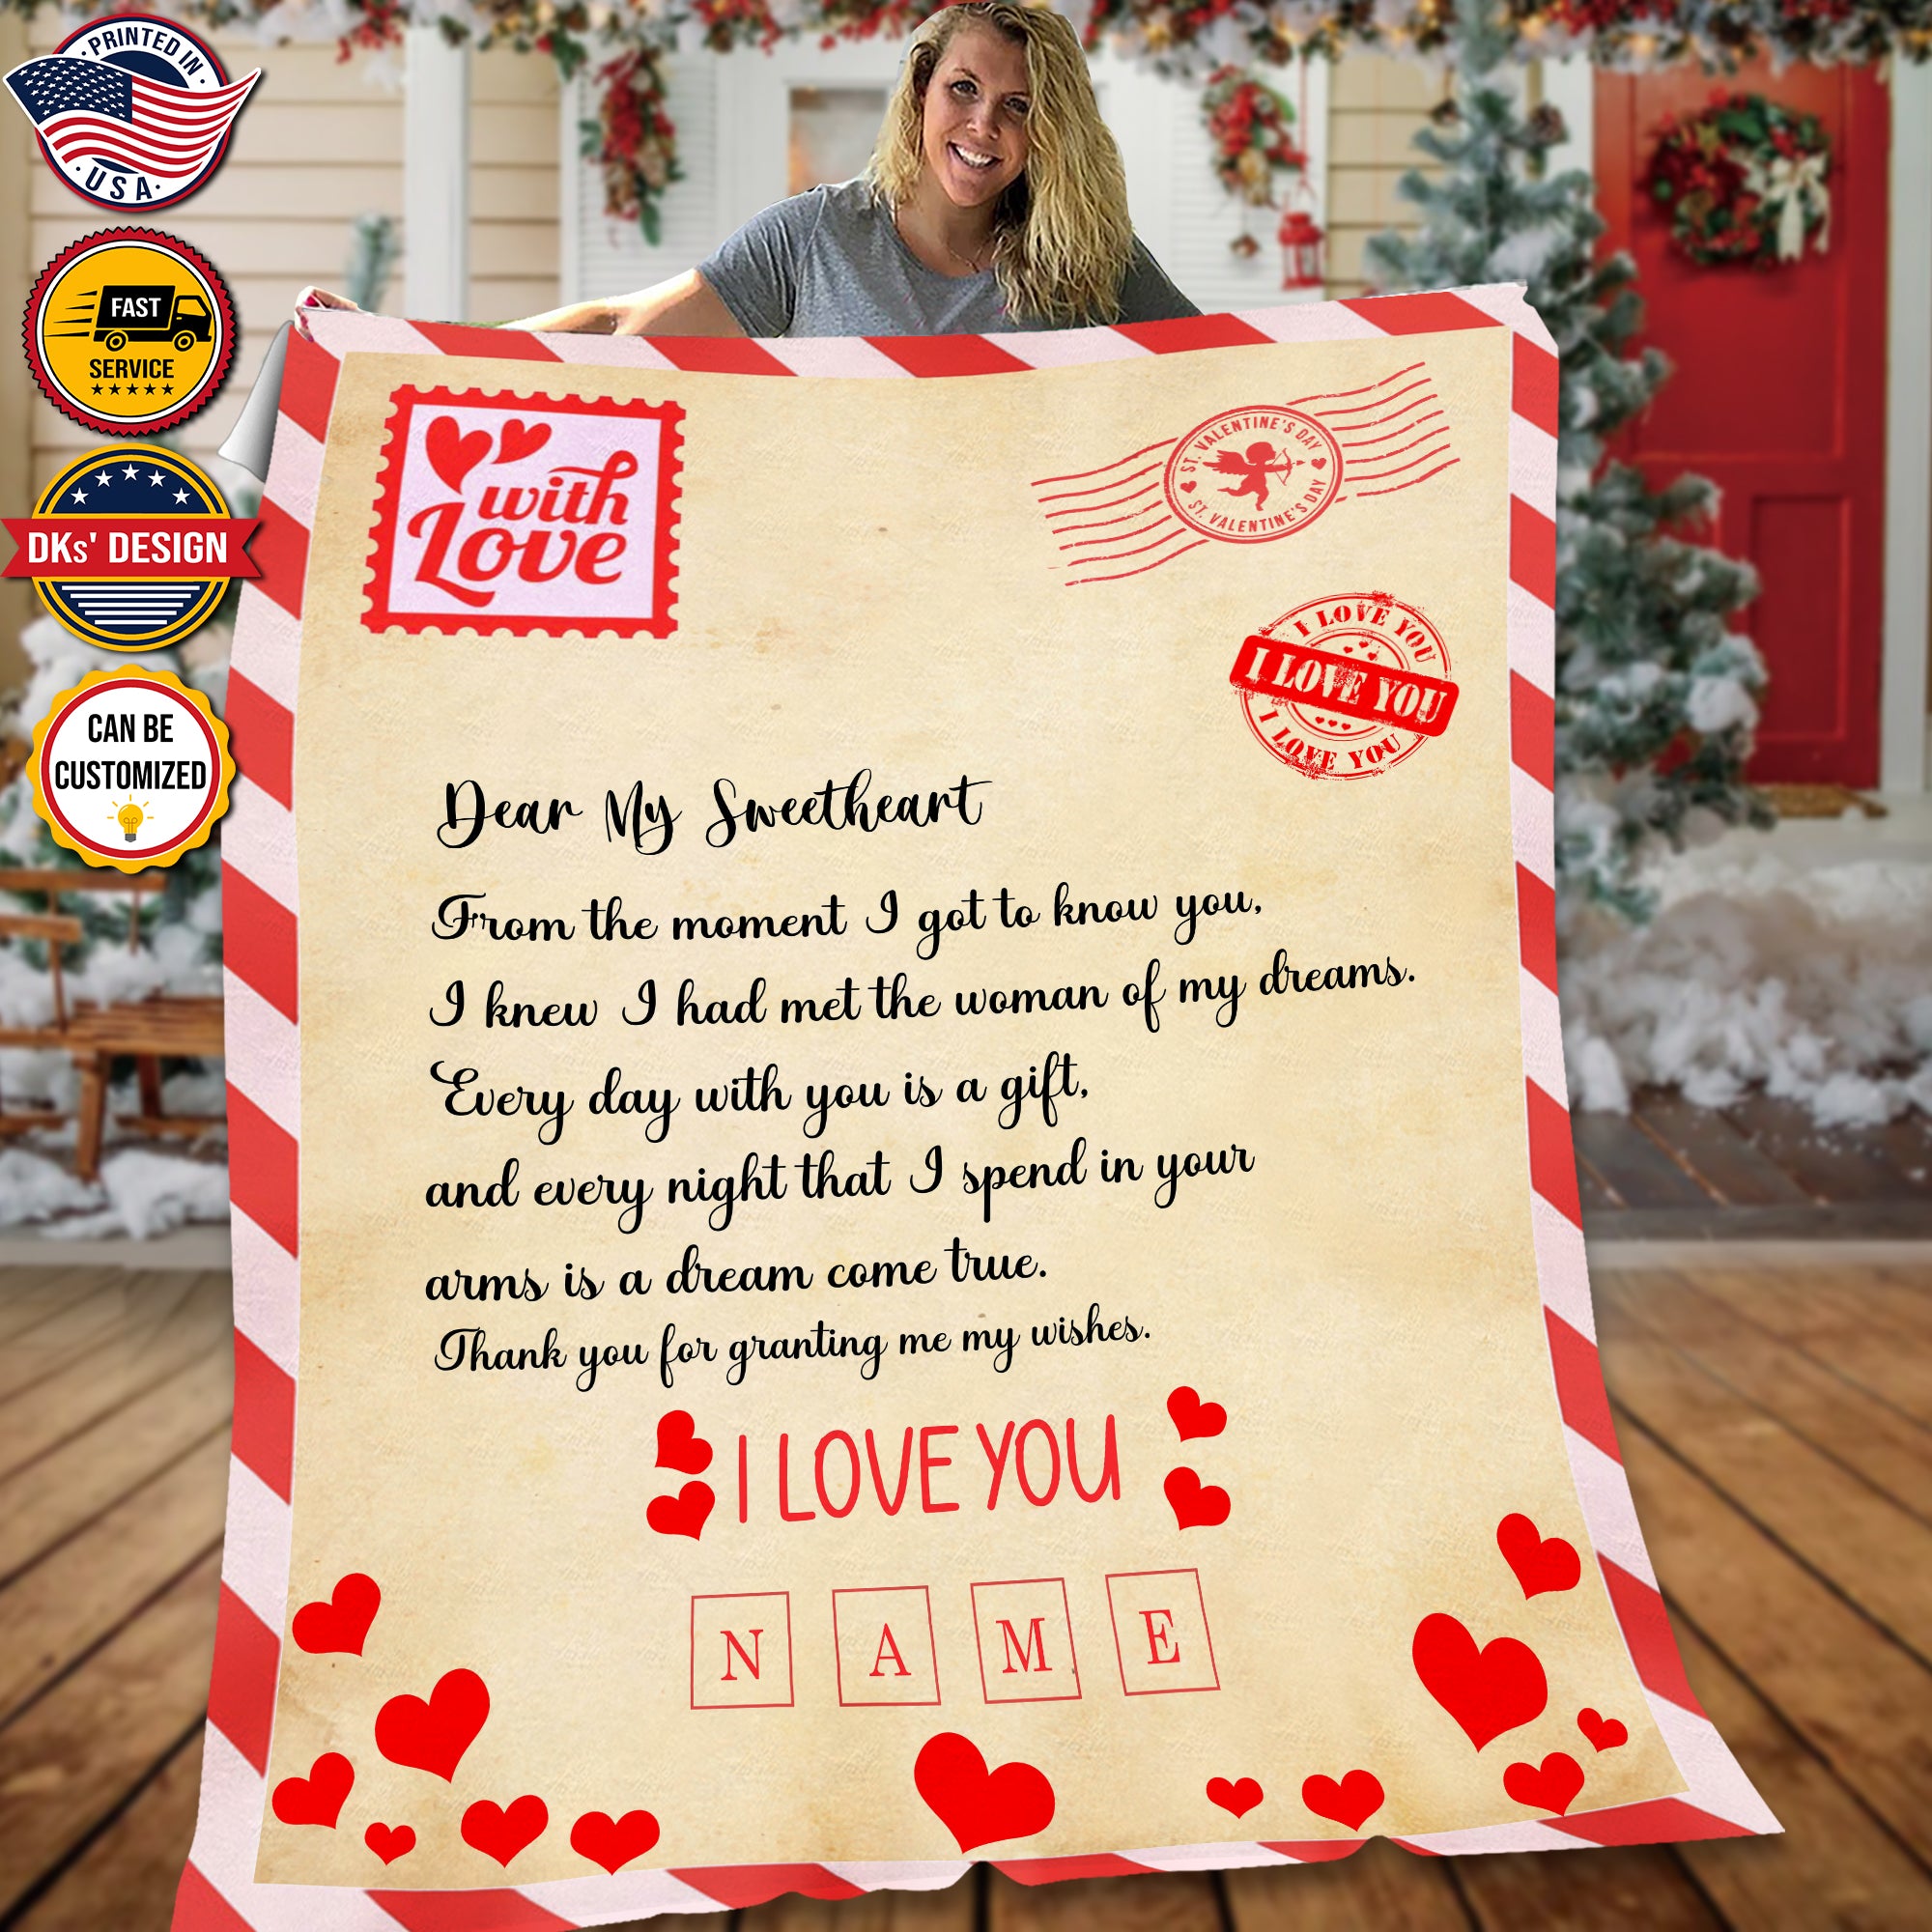 PRINTED IN
USA
FAST
SERVICE
DKs' DESIGN
CAN BE
CUSTOMIZED
with
Love
ST. VALENTINE'S DAY
ST. VALENTINE'S DAY
I LOVE YOU
I LOVE YOU
I LOVE YOU
Dear My Sweetheart
From the moment I got to know you,
I knew I had met the woman of my dreams.
Every day with you is a gift,
and every night that I spend in your
arms is a dream come true.
Thank you for granting me my wishes.
I LOVE YOU
N A M E